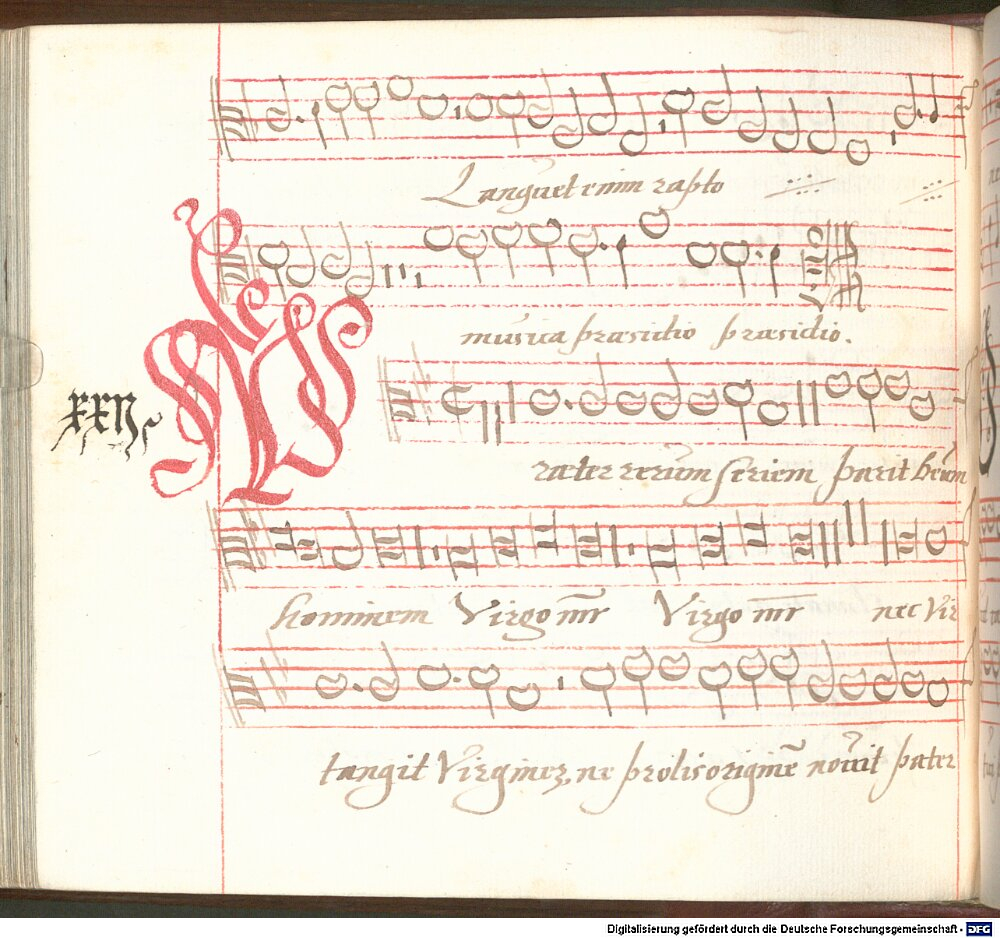 Languet enim rapto
musica præsidio præsidio.
XXII
Præter rerum seriem parit deum
hominem Virgo mr̄ Virgo mr̄ nec Vir
tangit Virginez, ne prolis originē nouit pater
Digitalisierung gefördert durch die Deutsche Forschungsgemeinschaft - DFG